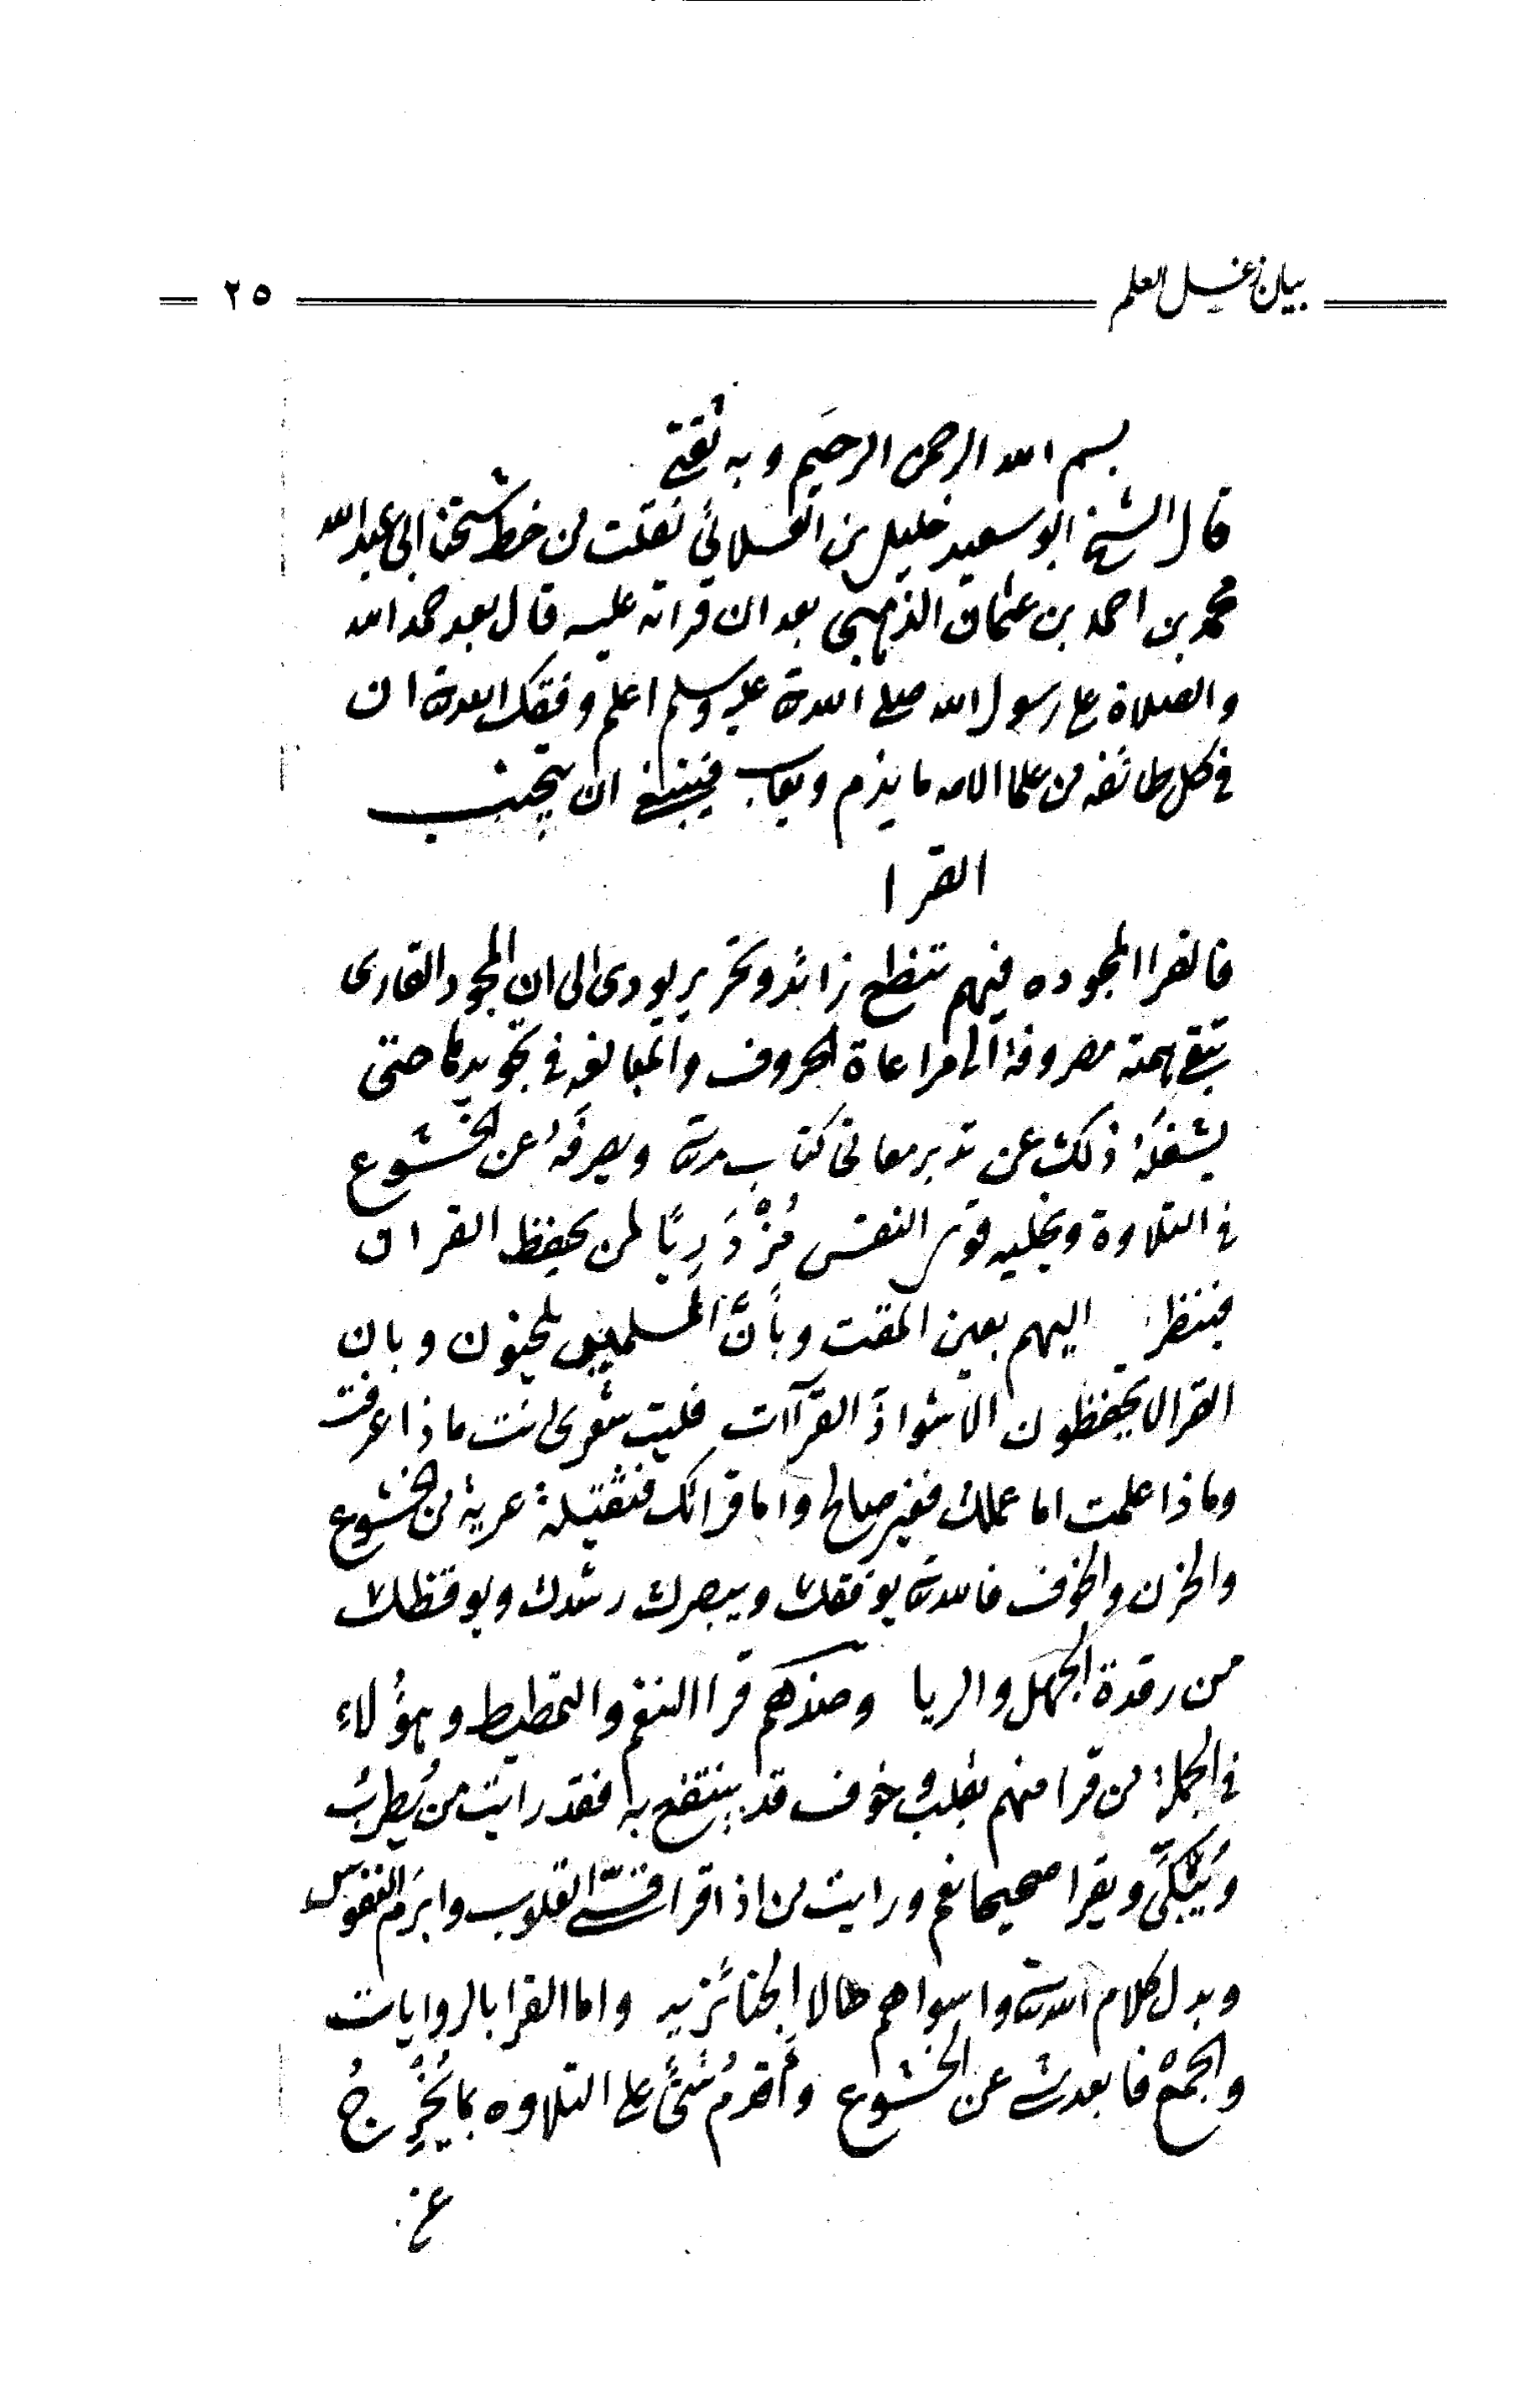 بيان زغل العلم ٢٥
بسم الله الرحمن الرحيم وبه ثقتي
قال الشيخ ابو سعيد خليل بن العلائي نقلت من خط شيخنا ابي عبد الله
محمد بن احمد بن عثمان الذهبي بعد ان قراته عليه قال بعد حمد الله
والصلاة على رسول الله صلى الله عليه وسلم اعلم وفقك الله ان
في كل طائفه من علما الامه ما يذم ويعاب فينبغي ان يتجنب
القرا
فالقرا المجوده فيهم تنطع زائد وتحرير يودى الى ان المجود القارى
تبقى همته مصروفة الى مراعاة الحروف والمبالغه في تجويدها حتى
يشغله ذلك عن تدبر معاني كتاب الله ويصرفه عن الخشوع
في التلاوة ويخليه قوى النفس مُزْدَرِيًا لمن يحفظ القران
فينظر اليهم بعين المقت وبأنَّ المسلمين يلحنون وبان
القرا لا يحفظون الا شواذّ القرآات فليت شعرى انت ماذا عرفت
وماذا علمت اما عملك فغير صالح واما قرائك فثقيلة عرية من الخشوع
والحزن والخوف فالله يوفقك ويبصرك رشدك ويوقظك
من رقدة الجهل والريا وضدهم قرا النغم والتمطيط وهؤلاء
في الجملة من قرا منهم بقلب وخوف قد ينتفع به فقد رايت من يُطرِبُ
ويُبكّي ويقرا صحيحا نعم ورايت من اذا قرا قسّى القلوب وابرم النفوس
وبدل كلام الله واسواهم حالا الجنائزيه واما القرا بالروايات
والجمع فابعدت عن الخشوع وأقدمُ شئً على التلاوه بما يُخْرِجُ
عن